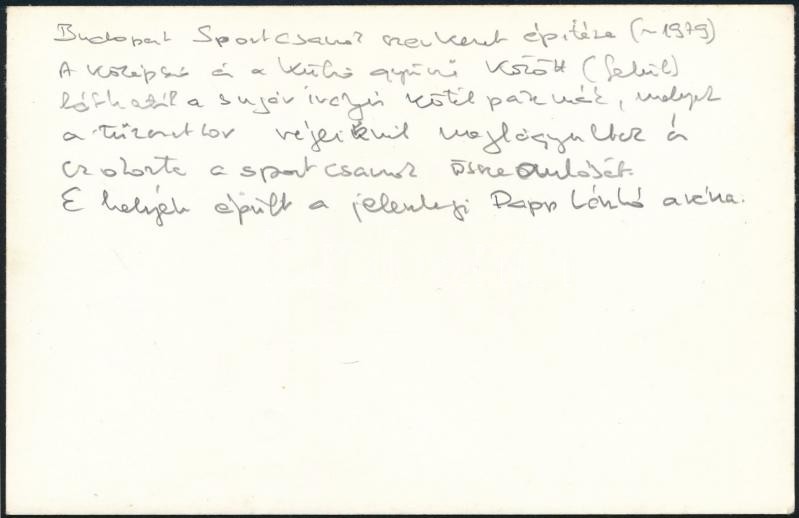 Budapest Sportcsarnok szerkezet építése (~1979)
A középső és a külső gyűrű között (felül)
láthatók a sugárirányú kötélpárnák, melyek
a tűzesetkor végeiknél meglágyultak és
ez okozta a sportcsarnok összeomlását.
E helyén épült a jelenlegi Papp László aréna.